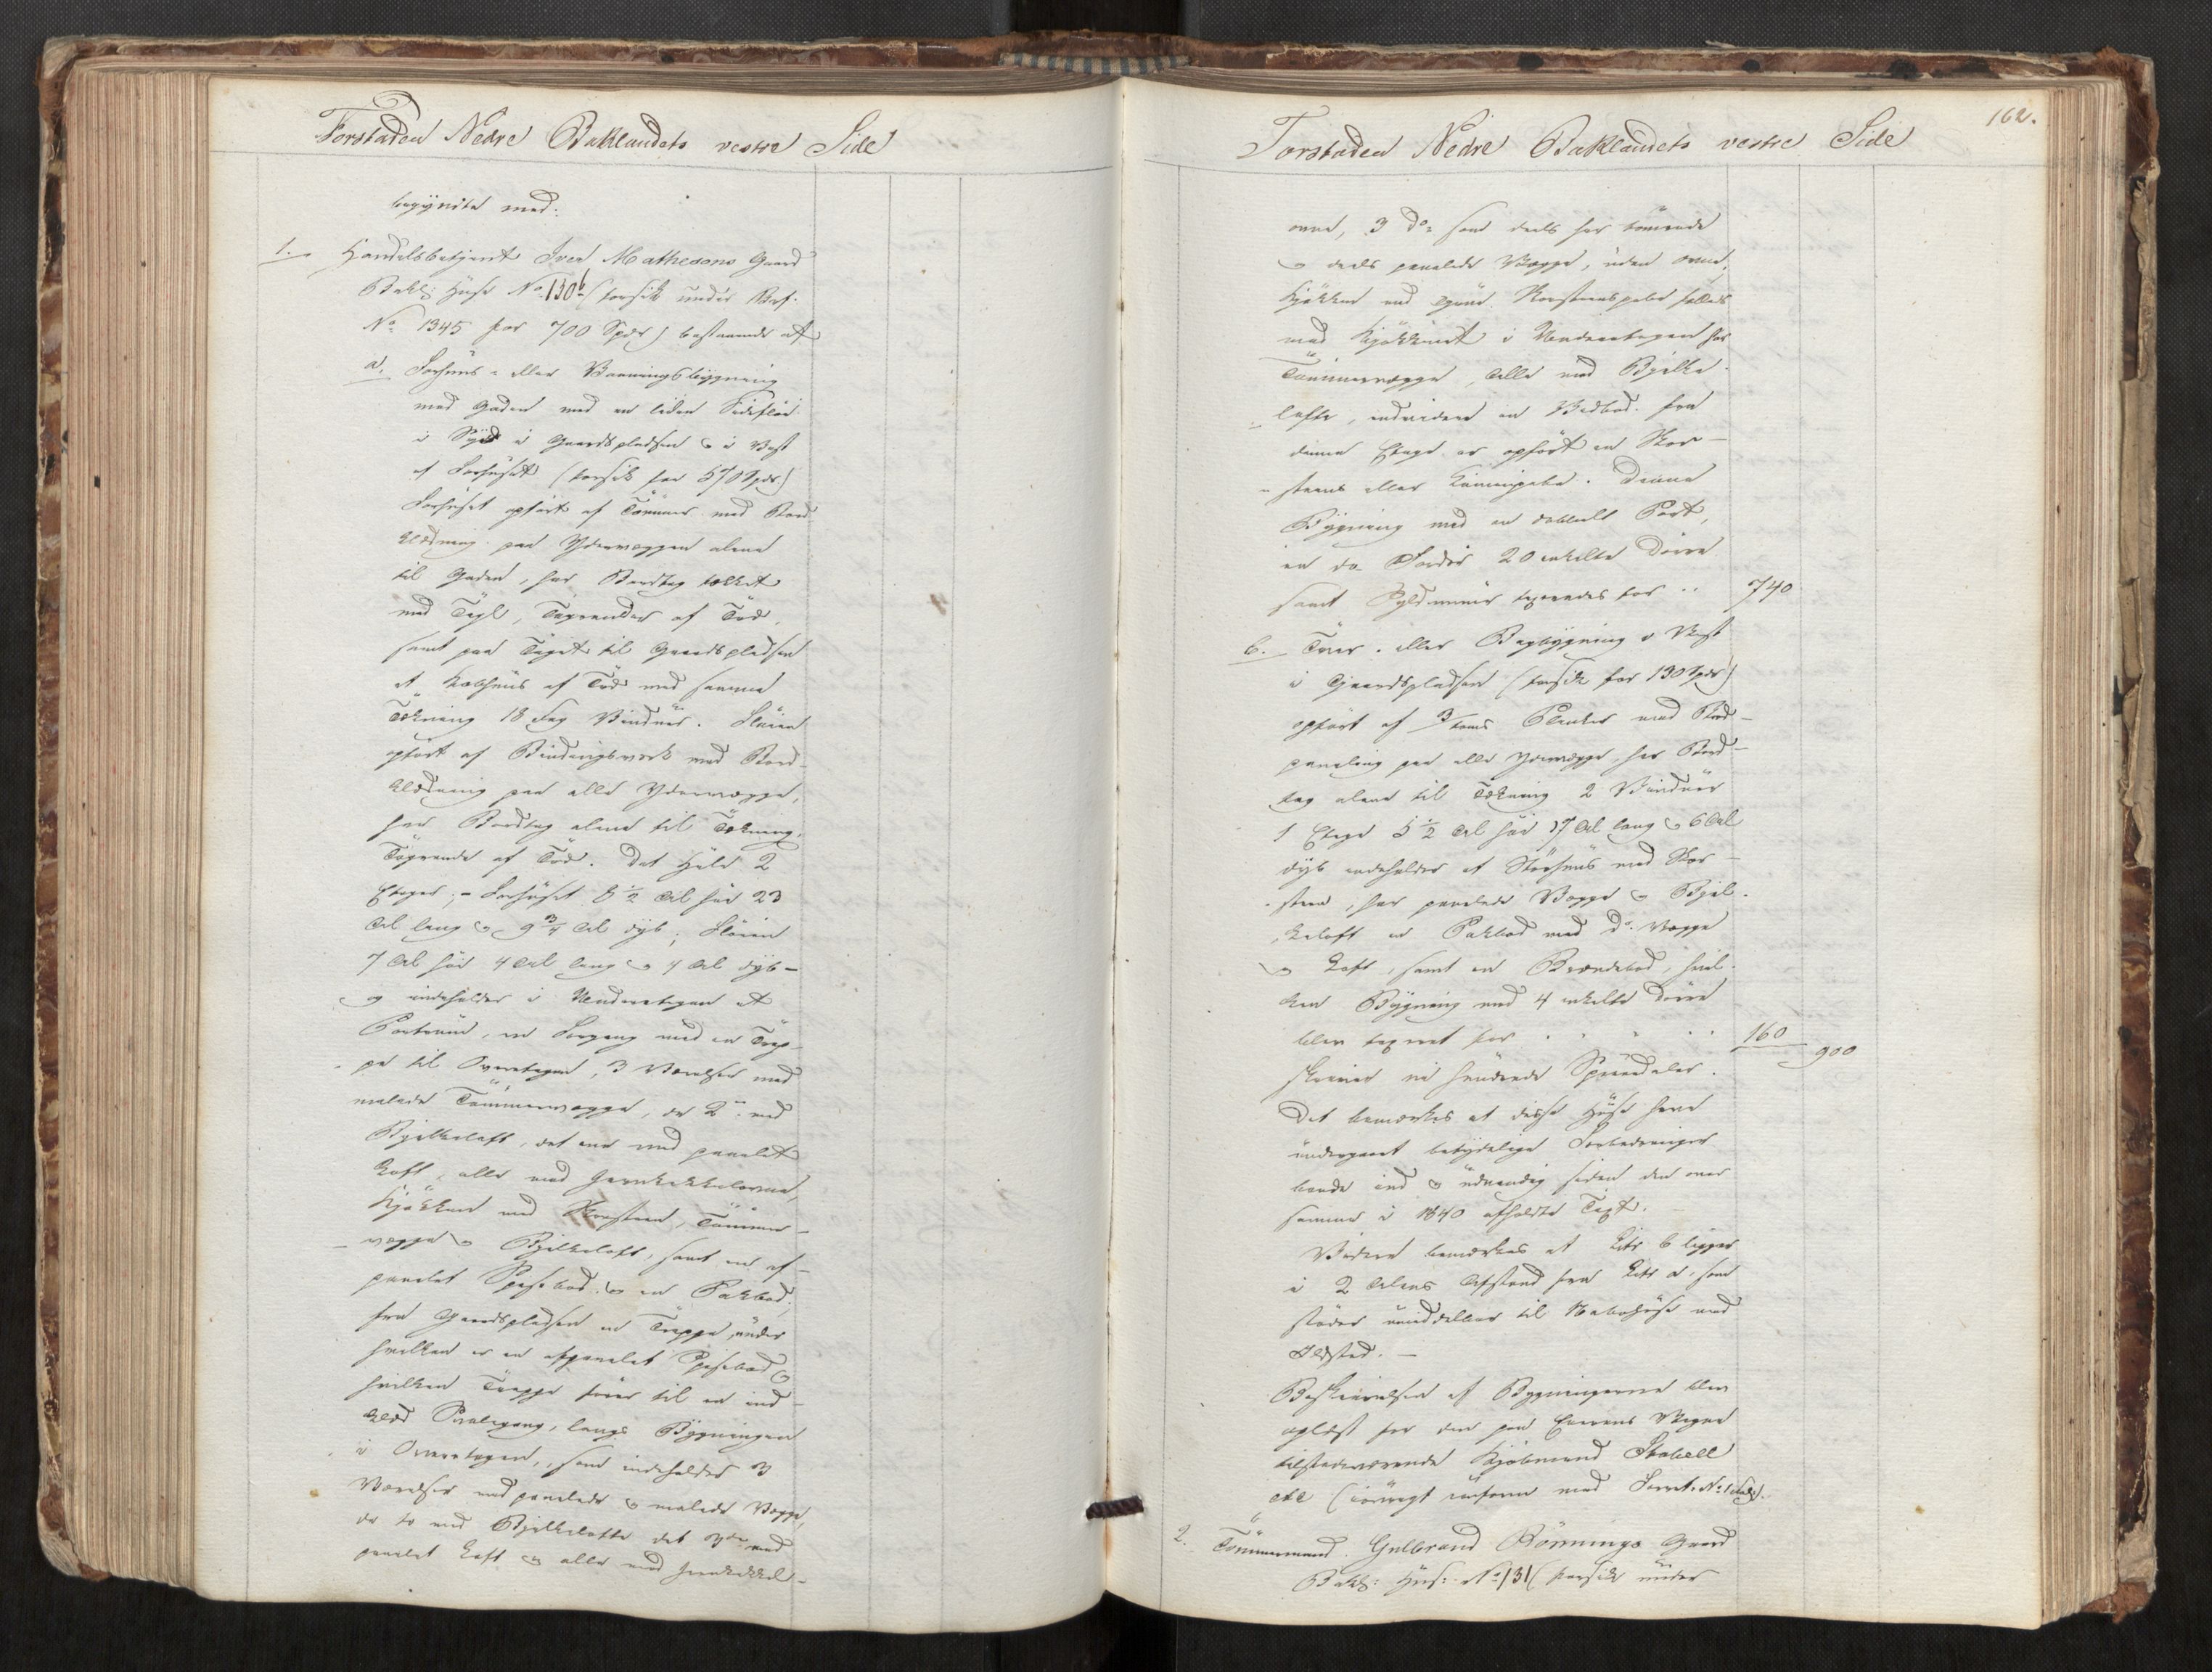 Forstaden Nedre Baklandets vestre Side
begyndte med:
1. Handelsbetjent Iver Mathesons Gaard
Bakl: Huse No 130b (forsik under Bas.
No 1345 for 700 Spdr) bestaaende af
a. Forhuus- eller Vaaningsbygning
mod Gaden med en liden Sidefløi
i Syd i Gaardspladsen og i Vest
af Forhuset (forsik for 570 Spdr)
Forhuset opført af Tømmer med Bord-
klædning paa Ydervæggen alene
til Gaden, har Bordtag tækket
med Tegl, Tagrender af Træ,
samt paa Taget til Gaardspladsen
et Kobhuus af Træ med samme
Tækning 18 Fag Vinduer. Fløien
opført af Bindingsverk med Bord-
klædning paa alle Ydervægge,
har Bordtag alene til Tækning,
Tagrende af Træ. Det Hele 2
Etager; - Forhuset 8 1/2 Al høi 23
Al lang og 9 3/4 Al dyb; Fløien
7 Al høi 4 Al lang og 4 Al dyb -
og indeholder i Underetagen et
Portrum, en Forgang med en Trap-
pe til Overetagen, 3 Værelser med
malede Tømmervægge, de 2de med
Bjelkeloft, det ene med panelet
Loft, alle med Jernkakkelovne,
Kjøkken med Skorsteen, Tømmer-
vægge og Bjelkeloft, samt en af-
panelet Spisebod og en Pakbod;
fra Gaardspladsen en Trappe, under
hvilken er en afpanelet Spisebod og
hvilken Trappe fører til en ind-
klæd Svalegang, langs Bygningen
i Overetagen, som indeholder 3
Værelser med panelede og malede Vægge,
de to med Bjelkelofte det 3die med
panelet Loft og alle med Jernkakkel-
162.
Forstaden Nedre Baklandets vestre Side
ovne, 3 do som deels har tømrede
og deels panelede Vægge, uden Ovne,
Kjøkken med egen Skorsteenspibe fælles
med Kjøkkenet i Underetagen har
Tømmervægge, Alle med Bjelke-
lofte, endvidere en Vedbod. Fra
denne Etage er opført en Skor-
steens eller Kaminpibe. Denne
Bygning med en dobbelt Port,
en do Fordør 20 enkelte Døre
samt Fyldmuur taxeredes for .. 740
b. Tver- eller Bagbygning i Vest
i Gaardspladsen (forsik for 130 Spdr)
opført af 3 toms Planker med Bord-
paneling paa alle Ydervægge, har Bord-
tag alene til Tækning 2 Vinduer
1 Etage 5 1/2 Al høi 17 Al lang og 6 Al
dyb indeholder et Størhuus med Skor-
steen, har panelede Vægge og Bjel-
keloft en Pakbod med do Vægge
og Loft, samt en Brændebod, hvil-
ken Bygning med 4 enkelte Døre
blev taxeret for . . . . 160 900
skriver ni hundrede Speciedaler.
Det bemærkes at disse Huse have
undergaaet betydelige Forbedringer
baade ind og udvendig siden den over
samme i 1840 afholdte Taxt.
Videre bemærkes at Litr b ligger
i 2 Alens Afstand fra Litr a, som
støder umiddelbar til Nabohuse mod
Ildsted. -
Beskrivelsen af Bygningerne blev
oplæst for den paa Eierens Vegne
tilstedeværende Kjøbmand Stabell
etc (iøvrigt conform med Forret. No 1
2. Tømmermand Gulbrand Rønnings Gaard
Bakl: Huse No 131 (forsik under